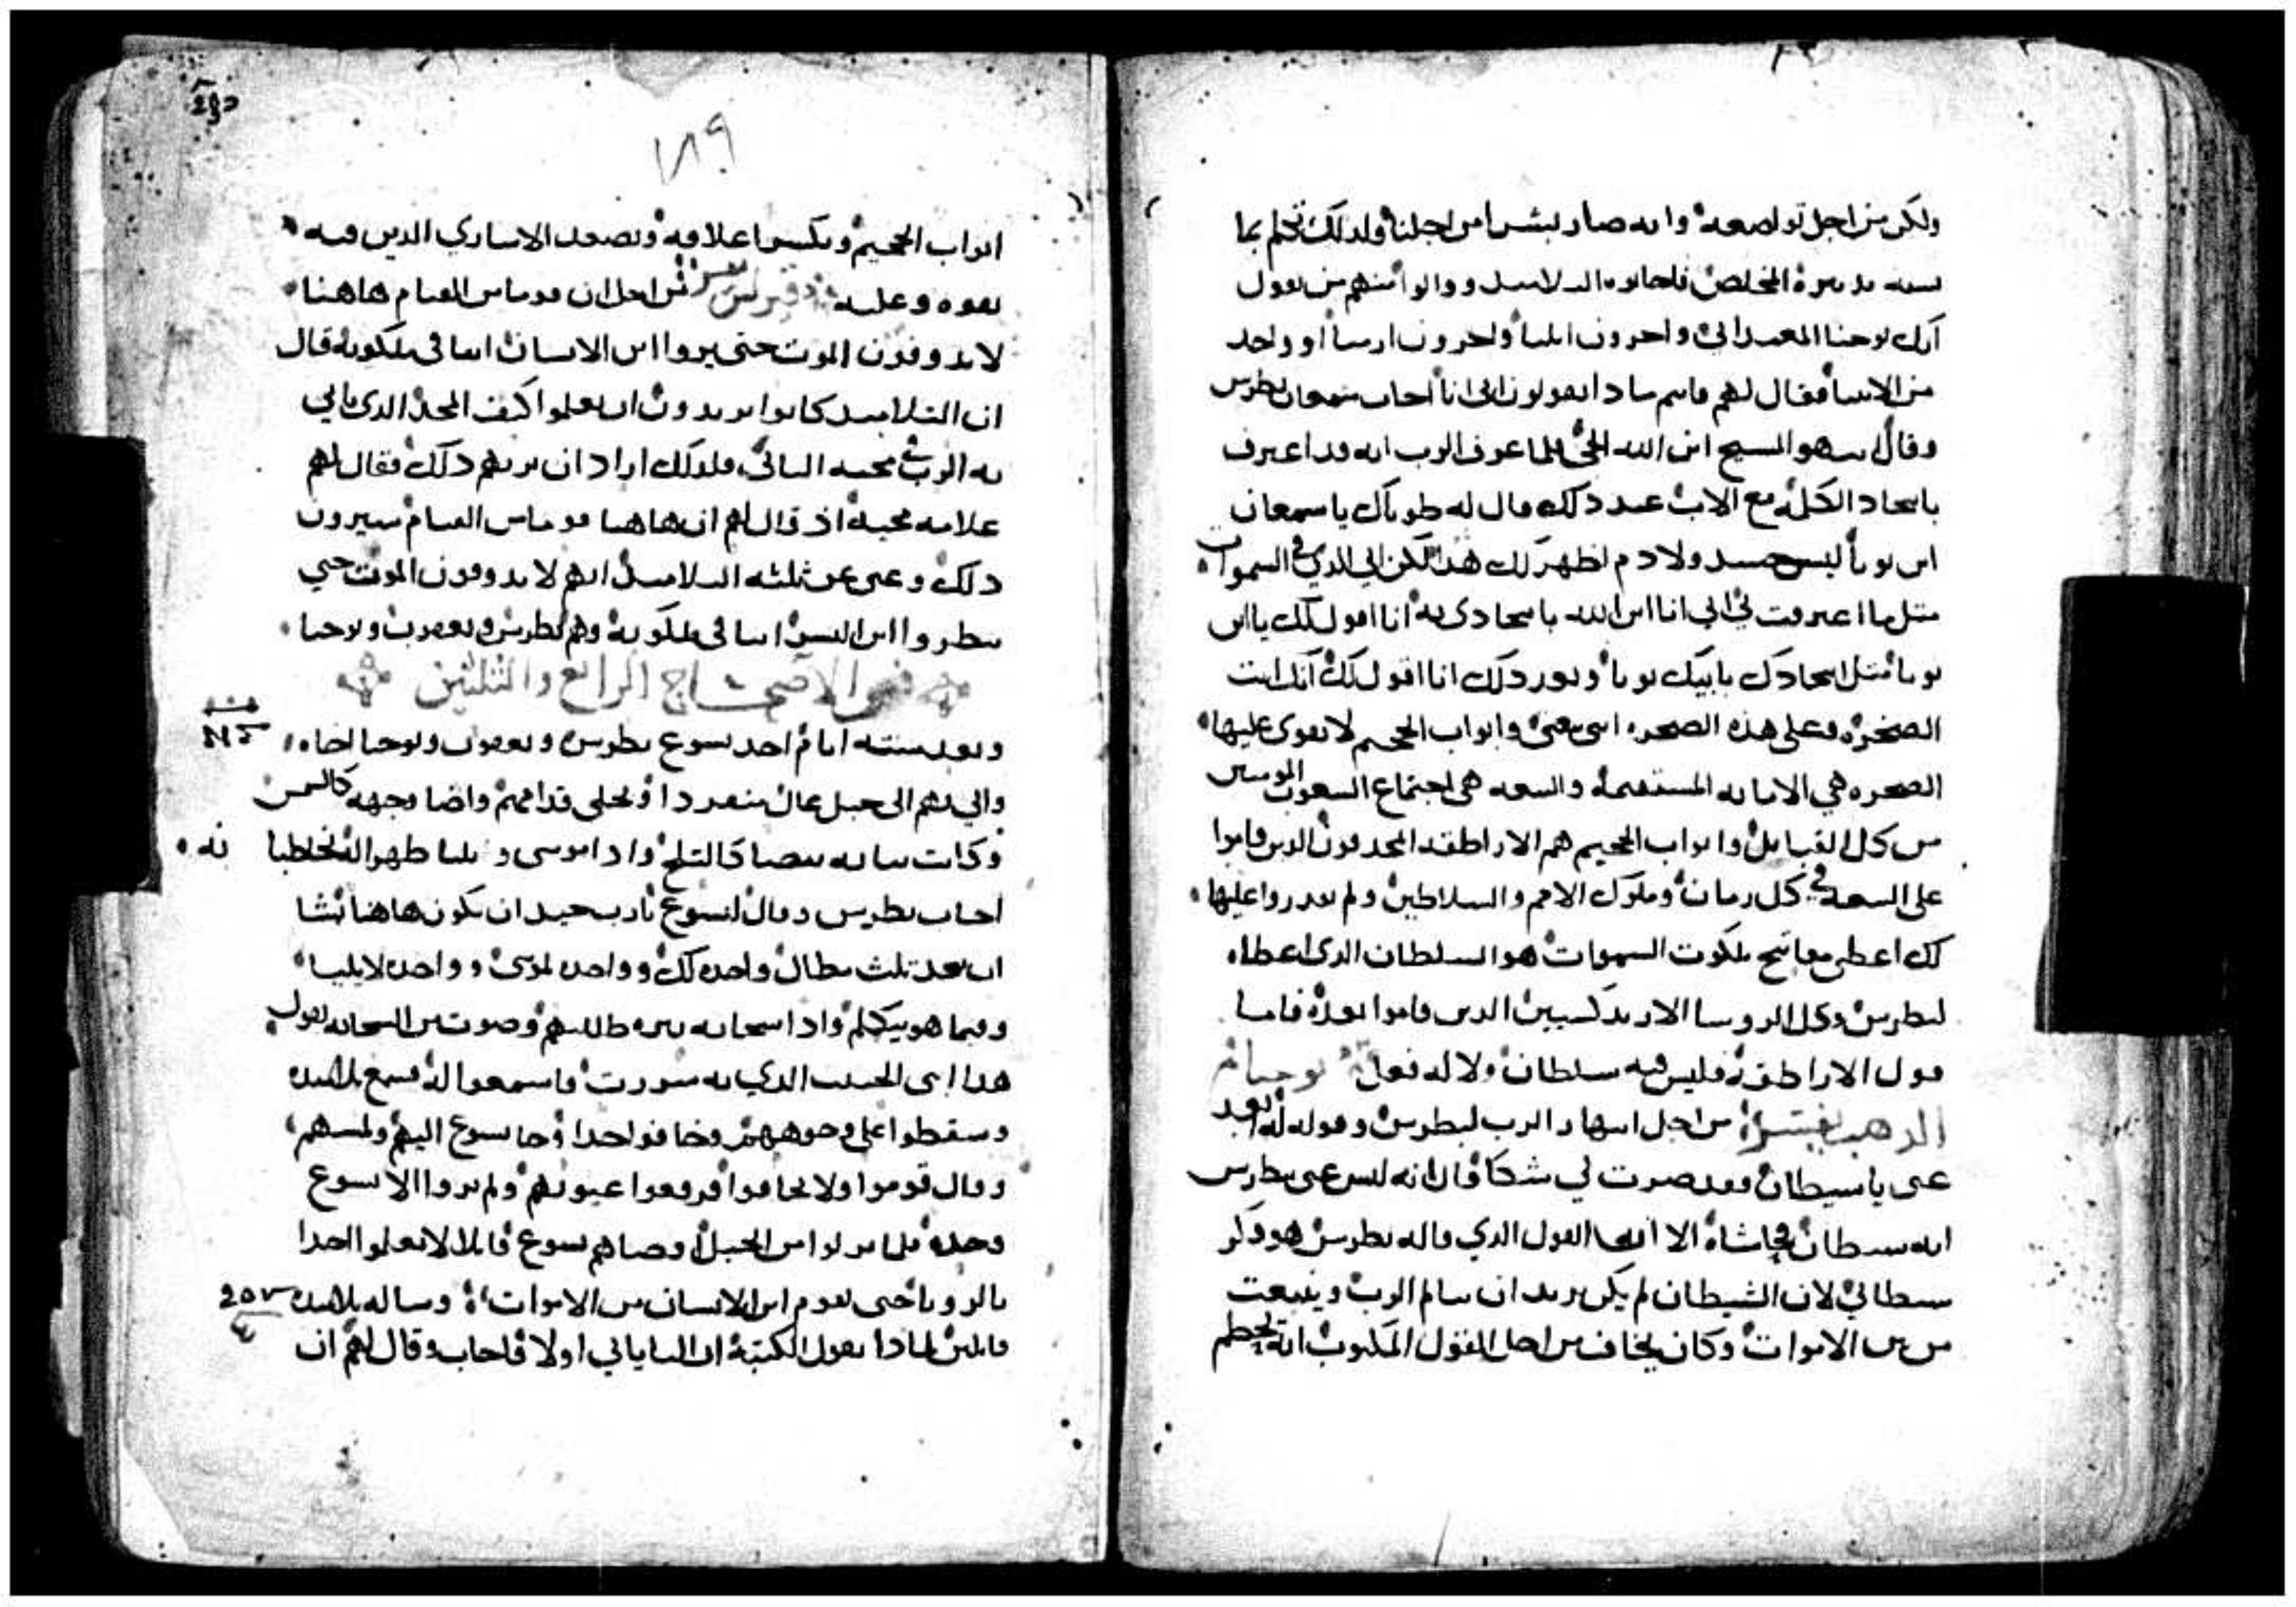 ولكن من اجل تواضعه وانه صار بشرا من اجلنا ولذلك تكلم بما
المخلص فاجابوه التلاميد وقالوا منهم من يقول
انك يوحنا المعمداني واخرون ايليا واخرون ارميا او واحد
من الانبيا فقال لهم فانتم مادا تقولون اني انا اجاب سمعان بطرس
وقال انت هو المسيح ابن الله الحي فلما عرف الرب انه قد اعترف
باتحاد الكلمه مع الاب عند دلك قال له طوباك يا سمعان
ابن يونا ليس جسد ولا دم اظهر لك هدا لكن ابي الدي في السموات
مثل ما اعترفت لي اني انا ابن الله باتحادي به انا اقول لك يا ابن
يونا مثل اتحادك بابيك يونا وبعد دلك انا اقول لك انك انت
الصخره وعلى هذه الصخره ابني بيعتي وابواب الجحيم لا تقوى عليها
الصخره هي الامانه المستقيمه والبيعه هي اجتماع الشعوب المومنين
من كل القبايل وابواب الجحيم هم الاراطقه المجدفون الدين قاموا
على البيعه في كل زمان وملوك الامم والسلاطين ولم يقدروا عليها
لك اعطي مفاتيح ملكوت السموات هو السلطان الدي اعطاه
لبطرس وكل الروسا الارتدكسيين الدين قاموا بعده فاما
قول الاراطقه فليس فيه سلطان ولا له فعل يوحنا فم
الدهب تفسير من اجل انتهار الرب لبطرس وقوله له ابعد
عني يا شيطان فقد صرت لي شكا قال انه ليس عن بطرس
انه شيطان حاشاه الا انما القول الدي قاله بطرس هو فكر
شيطاني لان الشيطان لم يكن يريد ان يتالم الرب وينبعت
من بين الاموات وكان يخاف من اجل القول المكتوب انه يحطم
١٨٩
ابواب الجحيم ويكسر اغلاقه ويصعد الاساري الدين فيه
بقوه وغلبه قيرلس تفسير من اجل ان قوما من القيام هاهنا
لا يدوقون الموت حتى يروا ابن الانسان اتيا في ملكوته قال
ان التلاميد كانوا يريدون ان يعلموا كيف المجد الدي ياتي
به الرب في مجيه التاني فلدلك اراد ان يريهم دلك فقال لهم
علامه مجيه اذ قال لهم ان هاهنا قوما من القيام سيرون
دلك وعنى عن ثلثه التلاميد انهم لا يدوقون الموت حتى
ينظروا ابن البشر اتيا في ملكوته وهم بطرس ويعقوب ويوحنا
الاصحاح الرابع والثلثين
وبعد سته ايام اخد يسوع بطرس ويعقوب ويوحنا اخاه
واتي بهم الى جبل عال منفردا وتجلى قدامهم واضا وجهه كالشمس
وكانت ثيابه بيضا كالتلج وادا موسى و ايليا ظهرا له يخاطبانه
اجاب بطرس وقال ليسوع يا رب جيد ان نكون هاهنا نشا
ان نعد ثلث مظال واحده لك وواحده لموسى وواحده لايليا
وفيما هو يتكلم وادا سحابه نيره ظللتهم وصوت من السحابه يقول
هدا ابني الحبيب الدي به سررت فاسمعوا له فسمع تلاميده
وسقطوا على وجوههم وخافوا جدا وجا يسوع اليهم ولمسهم
وقال قوموا ولا تخافوا فرفعوا عيونهم ولم يروا الا يسوع
وحده فلما نزلوا من الجبل اوصاهم يسوع قايلا لا تعلموا احدا
بالرويا حتى يقوم ابن الانسان من الاموات وساله تلاميده
قايلين لمادا يقول الكتبه ان ايليا ياتي اولا فاجاب وقال لهم ان